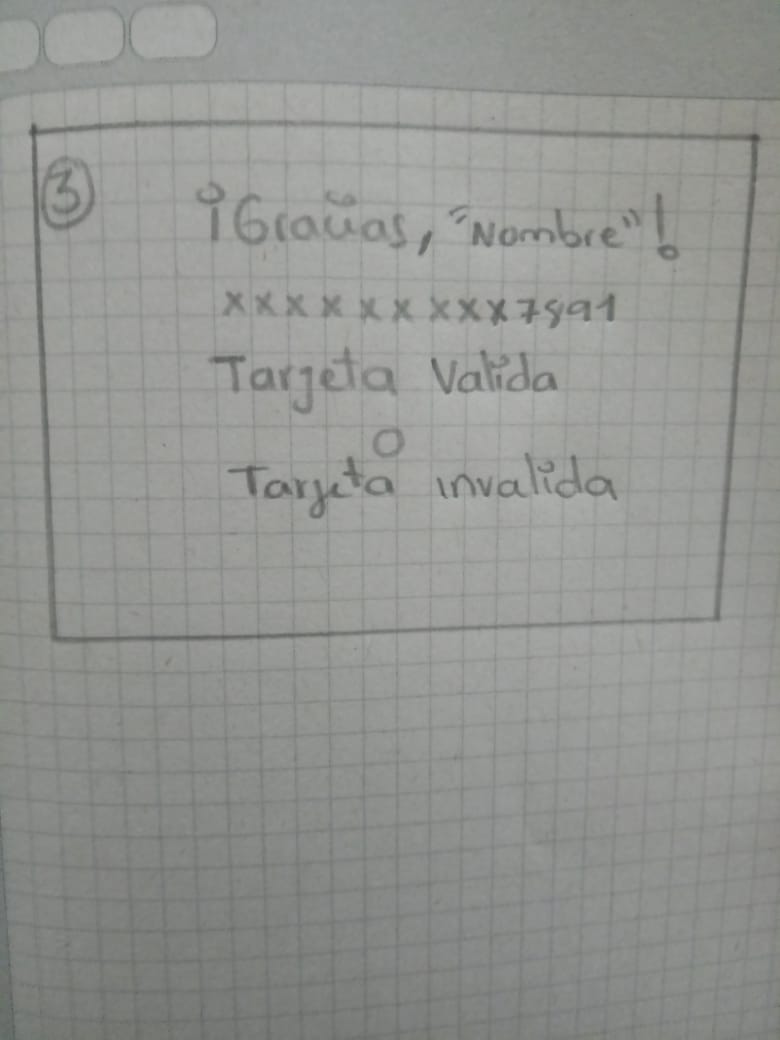 3
¡Gracias, "Nombre"!
xxxxxxxxxx7891
Tarjeta Valida
O
Tarjeta invalida